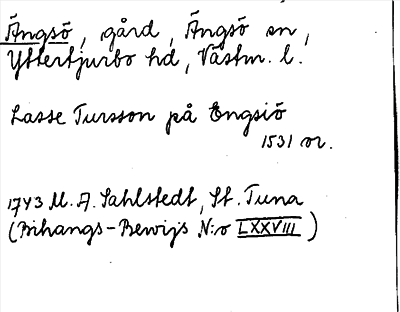 Ängsö, gård, Ängsö sn,
Yttertjurbo hd, Västm. l.
Lasse Tursson på Engsiö
1531 or.
1743 M. A. Sahlstedt, St. Tuna
(Bihangs-Bewijs N:o LXXVIII)